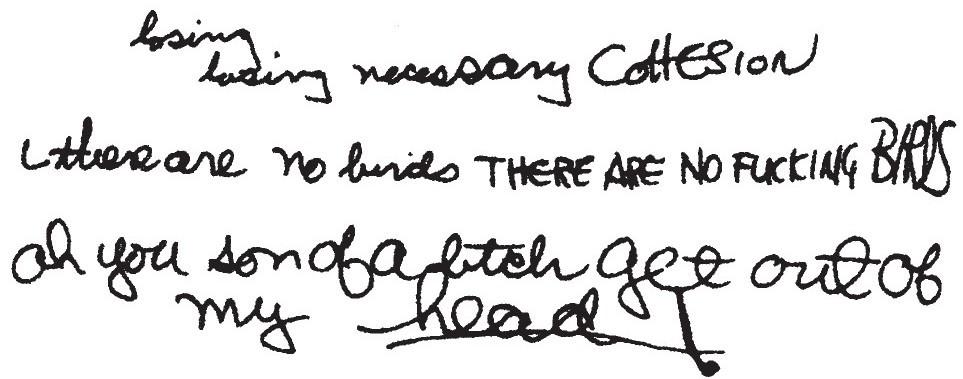 losing
losing necessary COHESION
there are no birds THERE ARE NO FUCKING BIRDS
ah you son of a bitch get out of
my head!